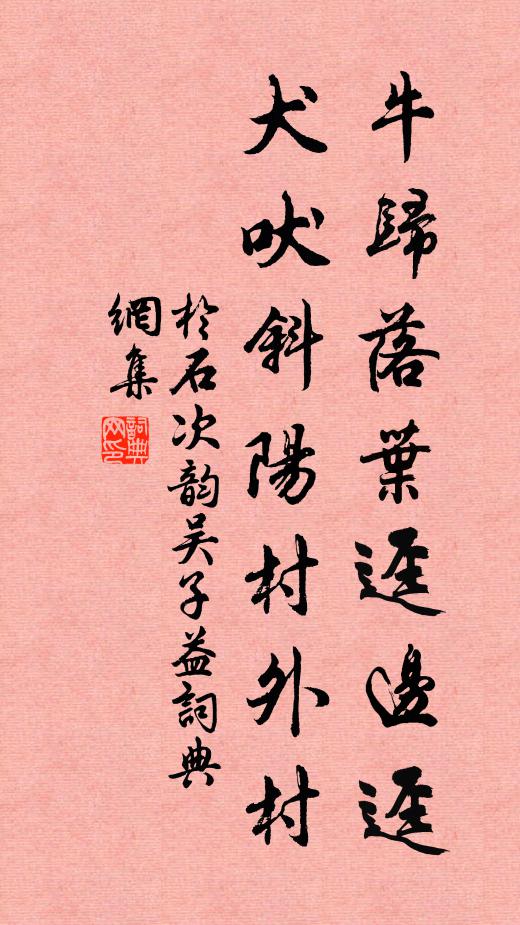 牛歸落葉逕邊逕
犬吠斜陽村外村
於石次韵吴子益詞典
網集
詞典網印